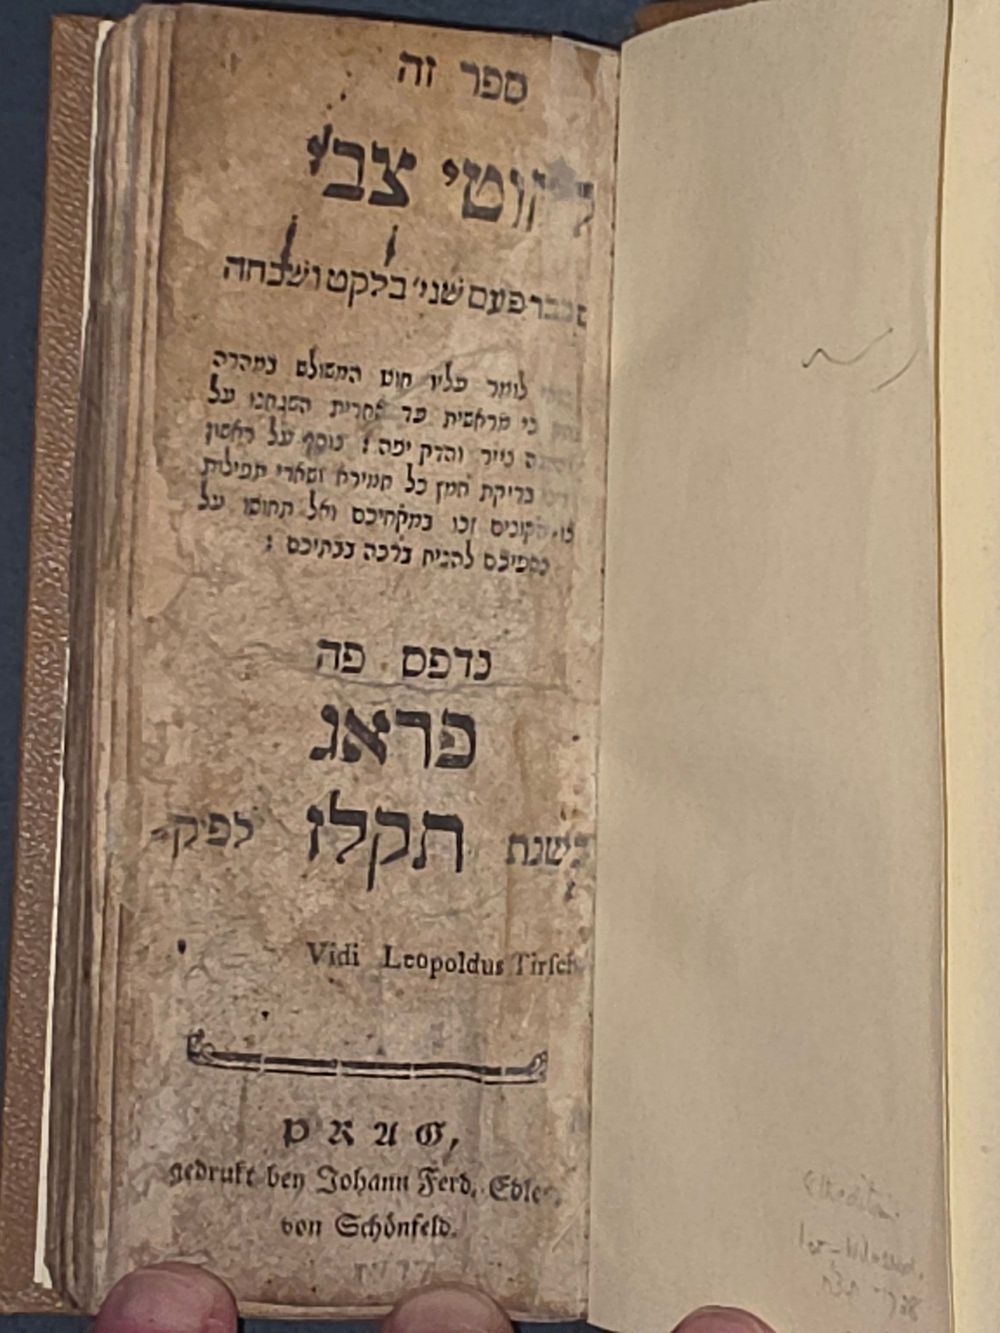 ספר זה
לקוטי צבי
פעם שני׳ בלקט ושכחה
לומר עליו חוט המשולש במהרה
כי מראשית עד אחרית השגחנו על
נייר והדק יפה : נוסף על ראשון
בדיקת חמץ כל חמירא ושארי תפילות
תקונים זכו במקחיכם ואל תחוסו על
כספיכם להניח ברכה בבתיכם :
נדפס פה
פראג
בשנת תקלז לפ״ק
Vidi Leopoldus Tirsch
PRAG,
gedrukt bey Johann Ferd. Edler
von Schönfeld.